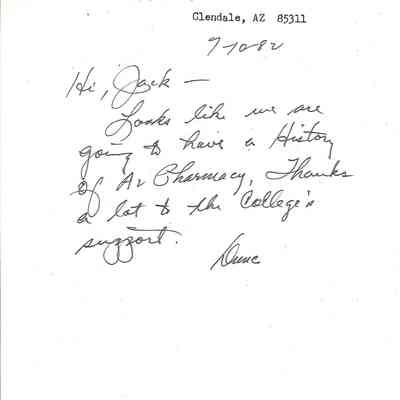 Glendale, AZ 85311
9-10-82
Hi, Jack —
Looks like we are
going to have a History
of Az Pharmacy, Thanks
a lot to the College's
support.
Dunc